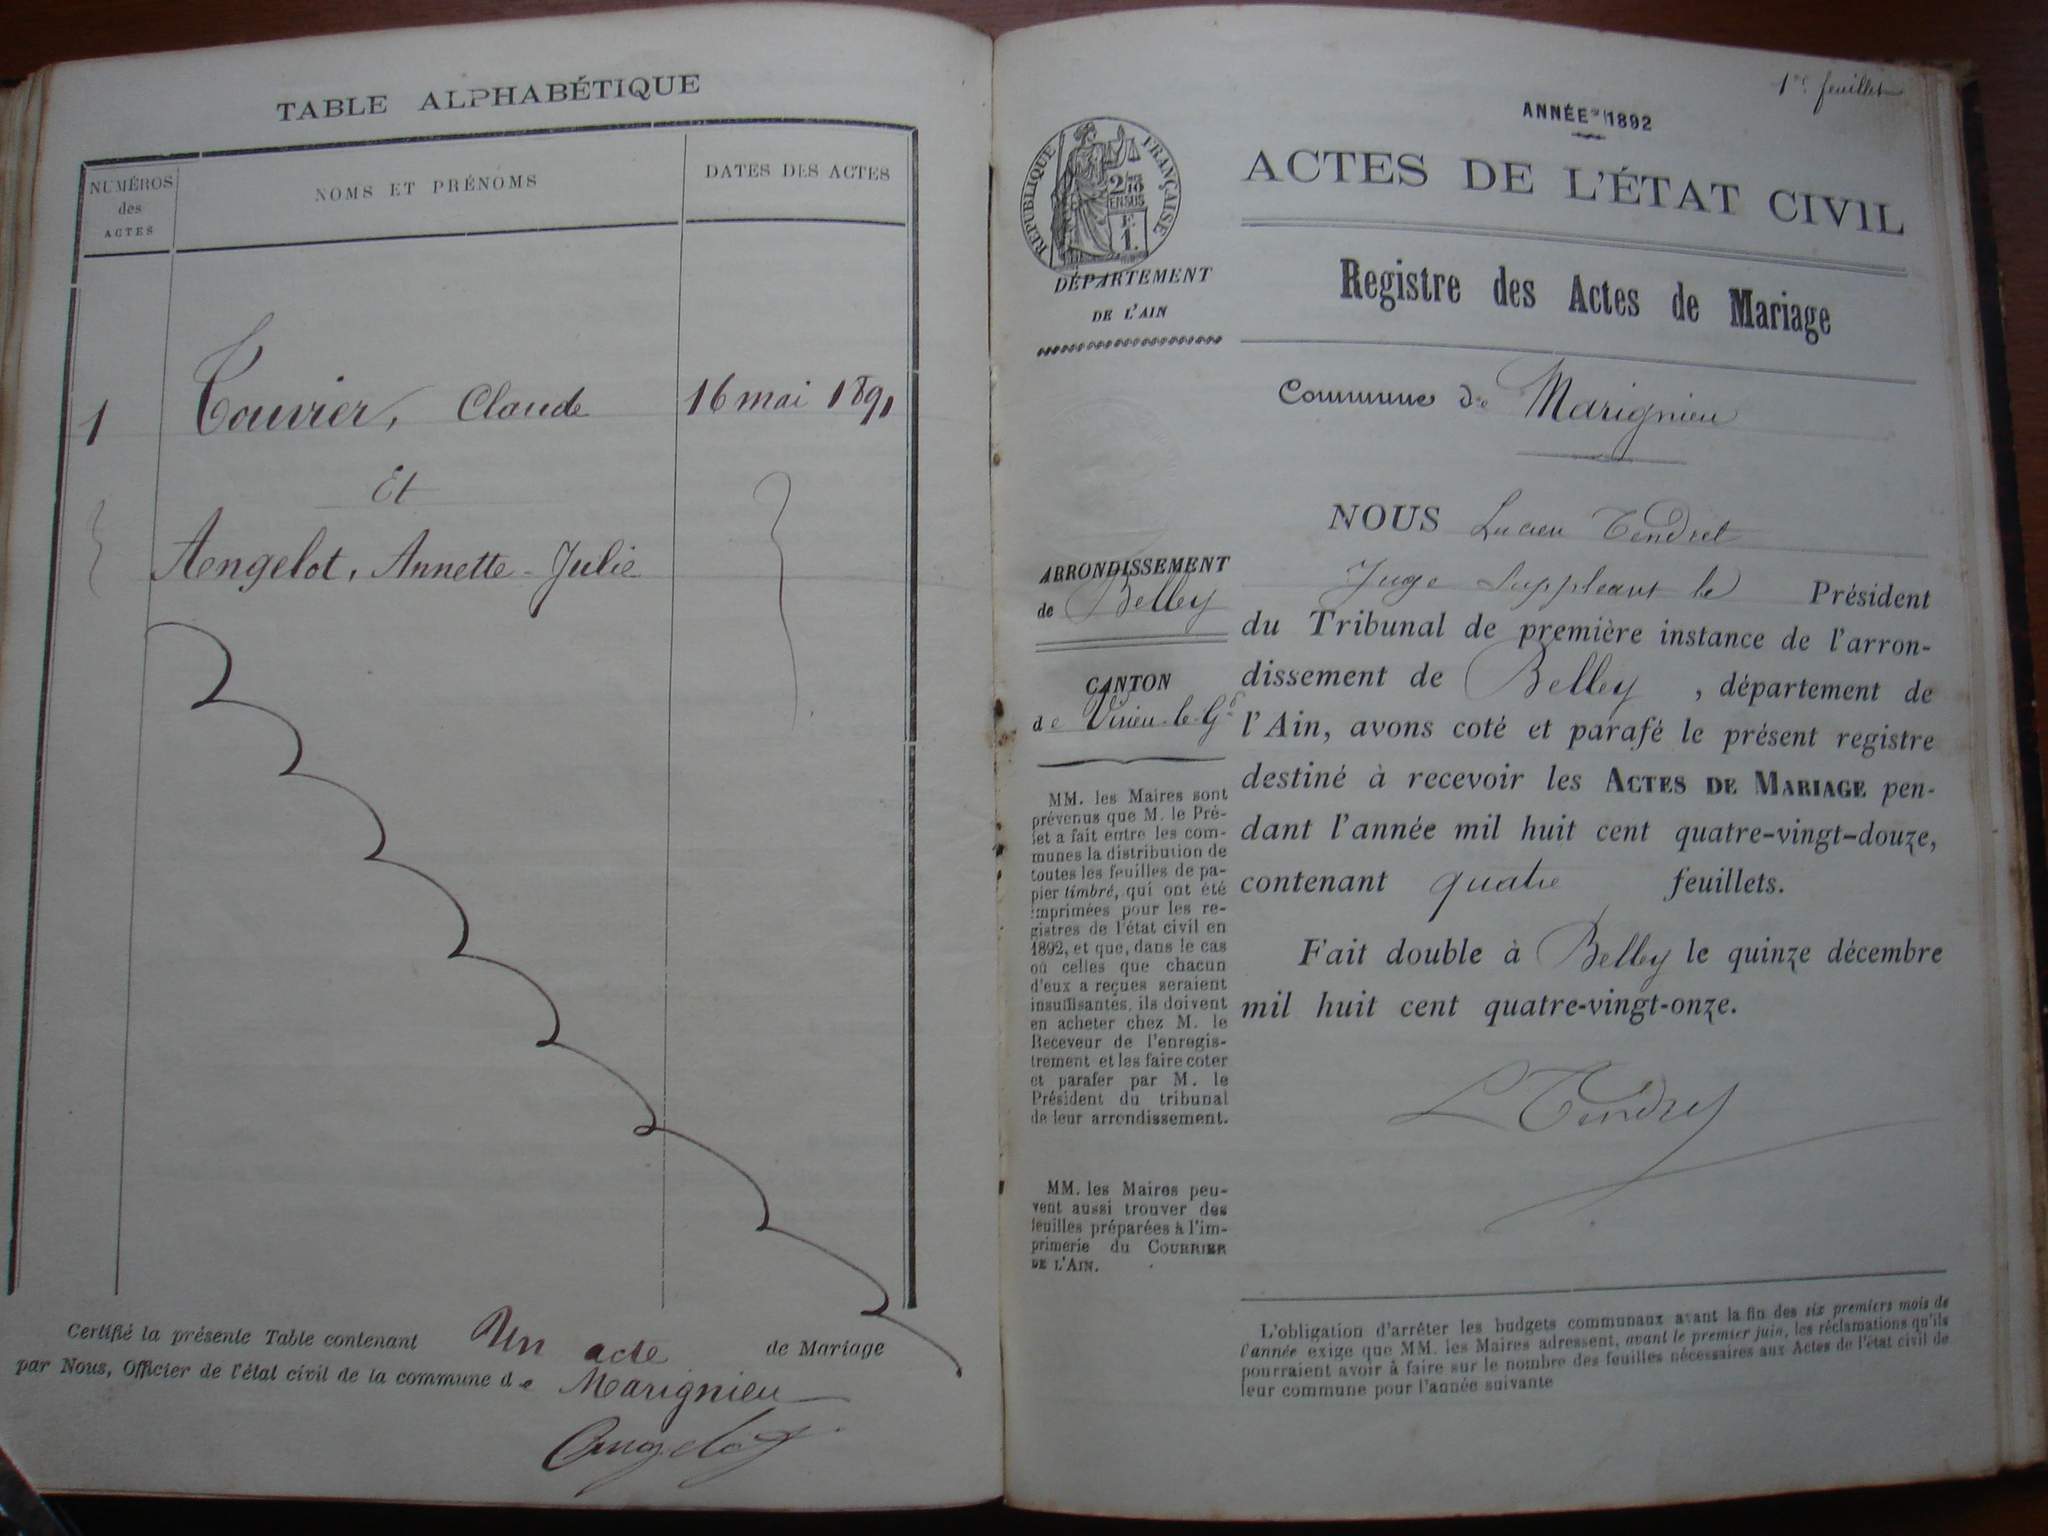 TABLE ALPHABÉTIQUE
NUMÉROS
des
ACTES
NOMS ET PRÉNOMS
DATES DES ACTES
1
Touvier, Claude
16 mai 1891
Et
Angelot, Annette-Julie
Certifié la présente Table contenant Un acte de Mariage
par Nous, Officier de l'état civil de la commune de Marignieu
Angelot
1er feuillet
ANNÉE 1892
RÉPUBLIQUE FRANÇAISE
2/10
EN SUS
F.
1.
DÉPARTEMENT
DE L'AIN
ACTES DE L'ÉTAT CIVIL
Registre des Actes de Mariage
Commune de Marignieu
ARRONDISSEMENT
de Belley
CANTON
de Virieu-le-Gd
MM. les Maires sont
prévenus que M. le Pré-
fet a fait entre les com-
munes la distribution de
toutes les feuilles de pa-
pier timbré, qui ont été
imprimées pour les re-
gistres de l'état civil en
1892, et que, dans le cas
où celles que chacun
d'eux a reçues seraient
insuffisantes, ils doivent
en acheter chez M. le
Receveur de l'enregis-
trement et les faire coter
et parafer par M. le
Président du tribunal
de leur arrondissement.
MM. les Maires peu-
vent aussi trouver des
feuilles préparées à l'im-
primerie du COURRIER
DE L'AIN.
NOUS Lucien Tendret
Juge Suppléant le Président
du Tribunal de première instance de l'arron-
dissement de Belley, département de
l'Ain, avons coté et parafé le présent registre
destiné à recevoir les ACTES DE MARIAGE pen-
dant l'année mil huit cent quatre-vingt-douze,
contenant quatre feuillets.
Fait double à Belley le quinze décembre
mil huit cent quatre-vingt-onze.
L Tendret
L'obligation d'arrêter les budgets communaux avant la fin des six premiers mois de
l'année exige que MM. les Maires adressent, avant le premier juin, les réclamations qu'ils
pourraient avoir à faire sur le nombre des feuilles nécessaires aux Actes de l'état civil de
leur commune pour l'année suivante